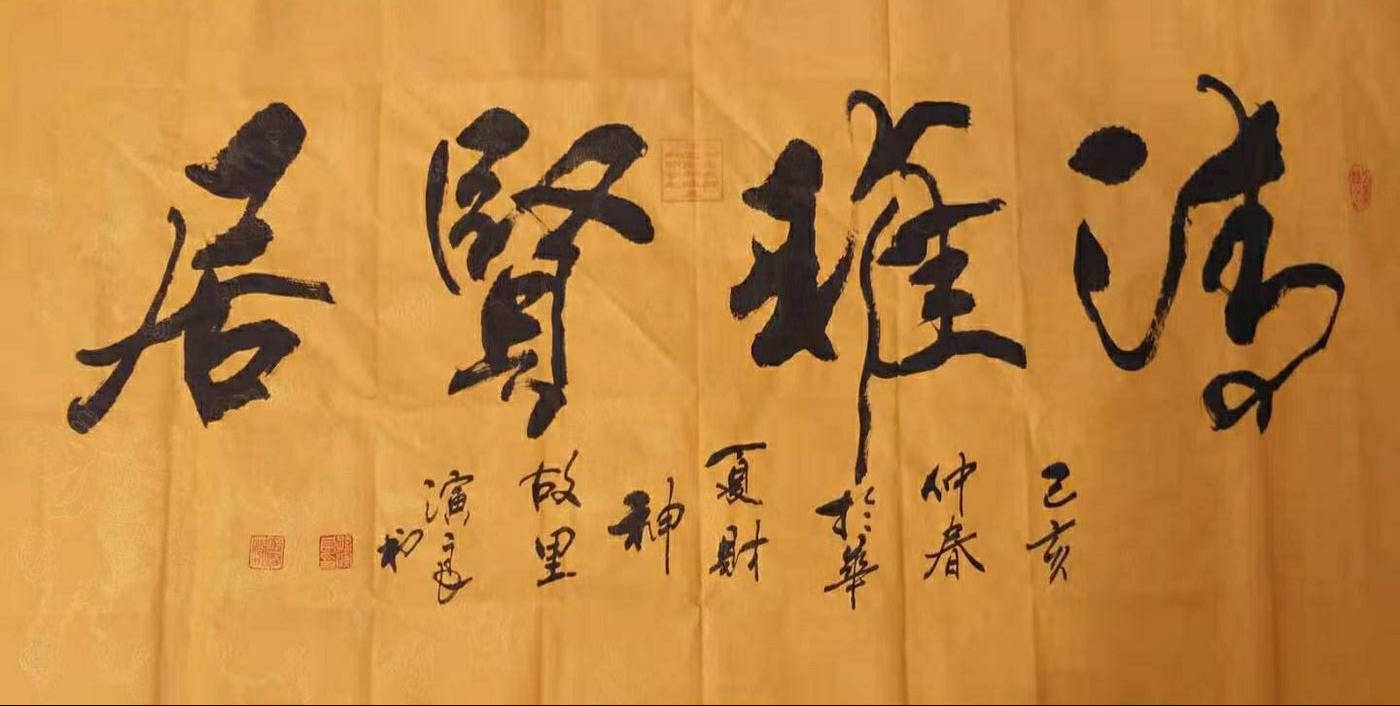 清雅賢居
己亥
仲春
於華
夏財
神
故里
演